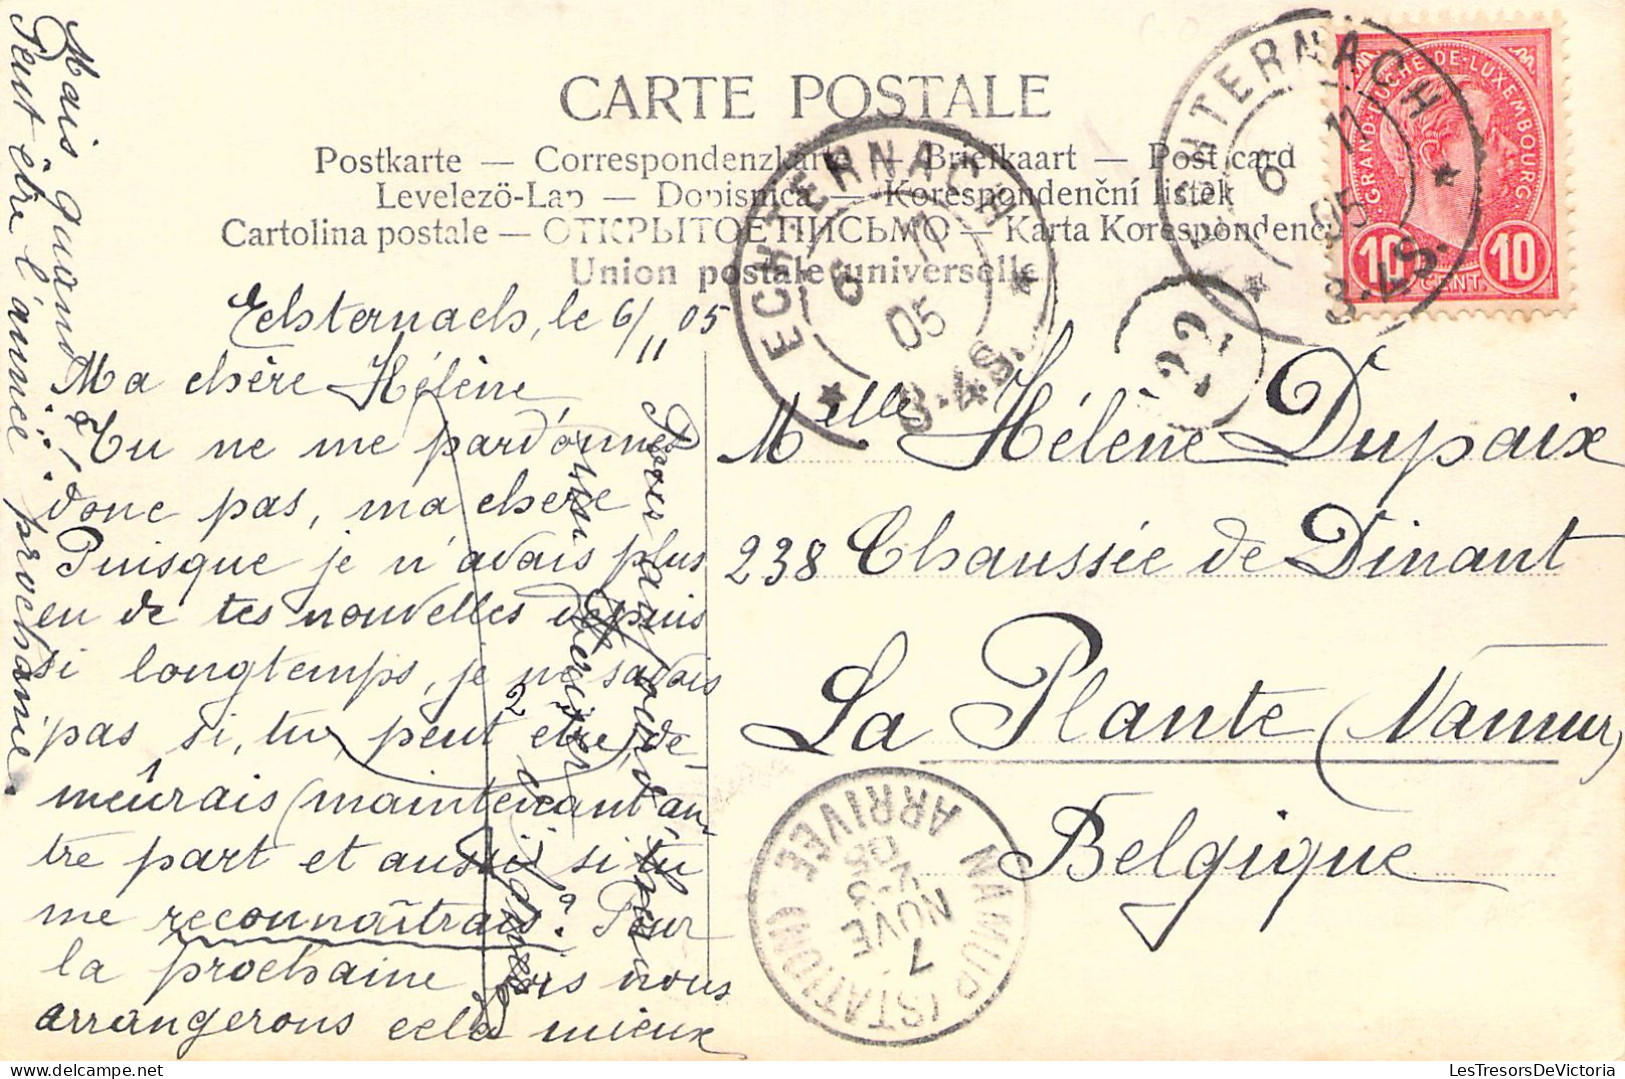 CARTE POSTALE
Postkarte — Correspondenzkarte — Briefkaart — Post card
Levelezö-Lap — Dopisnica — Korespondenční listek
Cartolina postale — ОТКРЫТОЕ ПИСЬМО — Karta Korespondenc
Union postale universelle
ECHTERNACH
6 11 05
3-4S.
ECHTERNACH
6 11 05
3-4S.
22
GRAND-DUCHÉ-DE-LUXEMBOURG
10 CENT. 10
Echternach, le 6/11 05
Ma chère Hélène
Tu ne me pardonnes
donc pas, ma chère
Puisque je n'avais plus
eu de tes nouvelles depuis
si longtemps, je ne savais
pas si, tu peut etre, de-
meûrais (maintenant au-
tre part et aussi si tu
me reconnaîtrais? Pour
la prochaine fois nous
arrangerons cela mieux
Mais quand
Peut être l'année prochaine.
Melle Hélène Dupaix
238 Chaussée de Dinant
La Plante (Namur)
Belgique
NAMUR (STATION)
ARRIVEE
7 NOVE
05
LesTresorsDeVictoria.com